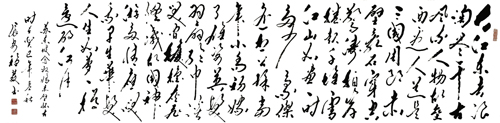 大江东去浪
淘尽千古
风流人物故垒
西边人道是
三国周郎赤
壁乱石穿空
惊涛拍岸卷起
千堆雪
江山如画一时
多少豪傑
遥想公瑾当
年小乔初嫁
了雄姿英发
羽扇纶巾谈
笑间樯橹灰
飞烟灭故国神
游多情应笑
我早生华发
人生如梦一樽
还酹江月
苏东坡念奴娇赤壁怀古